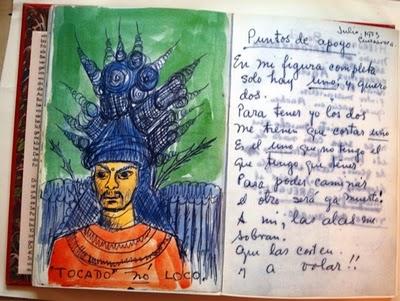 TOCADO no LOCO.
Julio, 1953
Cuernavaca
Puntos de apoyo.
En mi figura completa
solo hay uno, y quiero
dos.
Para tener yo los dos
me tienen que cortar uno
Es el uno que no tengo el
que tengo que tener
Para poder caminar
el otro será ya muerto!
A mi, las alas me
sobran.
Que las corten
y a volar!!